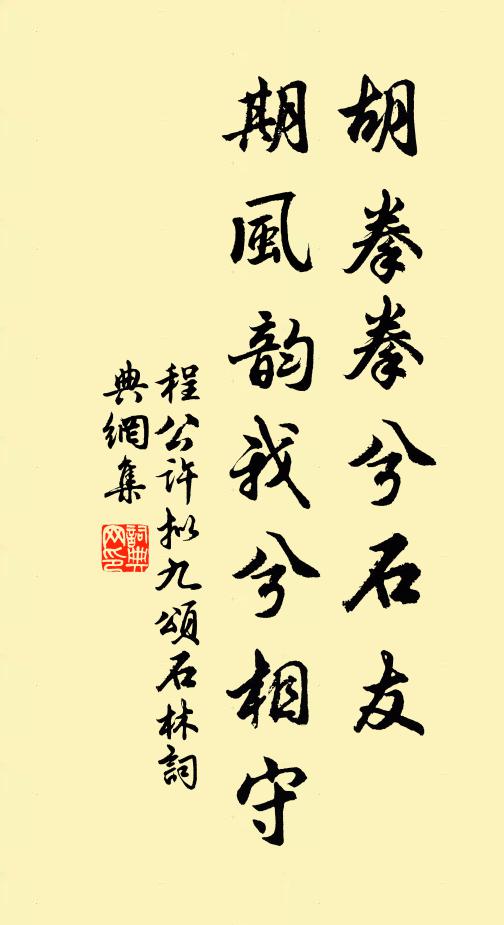 胡拳拳兮石友
期風韵我兮相守
程公许拟九頌石林詞
典網集
詞典
网印